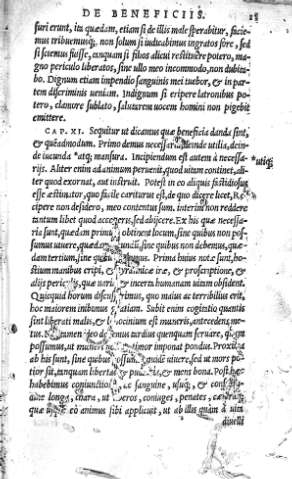 DE BENEFICIIS. 18
furi erunt, ita quædam, etiam si de illis male sperabitur, facie-
mus tribuemusq́; non solum si iudicabimus ingratos fore, sed
si sciemus fuisse, tanquam si filios alicui restituere potero, ma-
gno periculo liberatos, sine ullo meo incommodo, non dubita-
bo. Dignum etiam impendio sanguinis mei tuebor, & in par-
tem discriminis ueniam. Indignum si eripere latronibus po-
tero, clamore sublato, salutarem uocem homini non pigebit
emittere.
CAP. XI. Sequitur ut dicamus quæ beneficia danda sint,
& quẽadmodum. Primo demus necessaria, deinde utilia, dein-
de iucunda *atq; mansura. Incipiendum est autem à necessa- *utiq;
rijs. Aliter enim ad animum peruenit, quod uitam continet, ali-
ter quod exornat, aut instruit. Potest in eo aliquis fastidiosus
esse æstimator, quo facile cariturus est, de quo dicere licet, Re-
cipere non desidero, meo contentus sum. interim non reddere
tantum libet quod acceperis, sed abijcere. Ex his quæ necessa-
ria sunt, quædam primum obtinent locum, sine quibus non pos-
sumus uiuere, quædam secundum, sine quibus non debemus, quæ-
dam tertium, sine quibus Prima huius notæ sunt, ho-
stium manibus eripi, & tyrannicæ iræ, & proscriptione, &
alijs periculis, quæ uaria & incerta humanam uitam obsident.
Quicquid horum discusserimus, quo maius ac terribilius erit,
hoc maiorem inibimus gratiam. Subit enim cogitatio quantis
sint liberati malis, & lenocinium est muneris, antecedens me-
tus. Nec tamen ideo debemus tardius quenquam seruare, quàm
possumus, ut muneri nostro timor imponat pondus. Proxima
ab his sunt, sine quibus possumus quidem uiuere, sed ut mors po-
tior sit, tanquam libertas & pudicitia, & mens bona. Post hæc
habebimus coniunctione ac sanguine, usuq́;, & consuetu-
dine longa, chara, ut liberos, coniuges, penates, cætera
quæ usque eò animus sibi applicuit, ut ab illis quàm à uita
diuelli